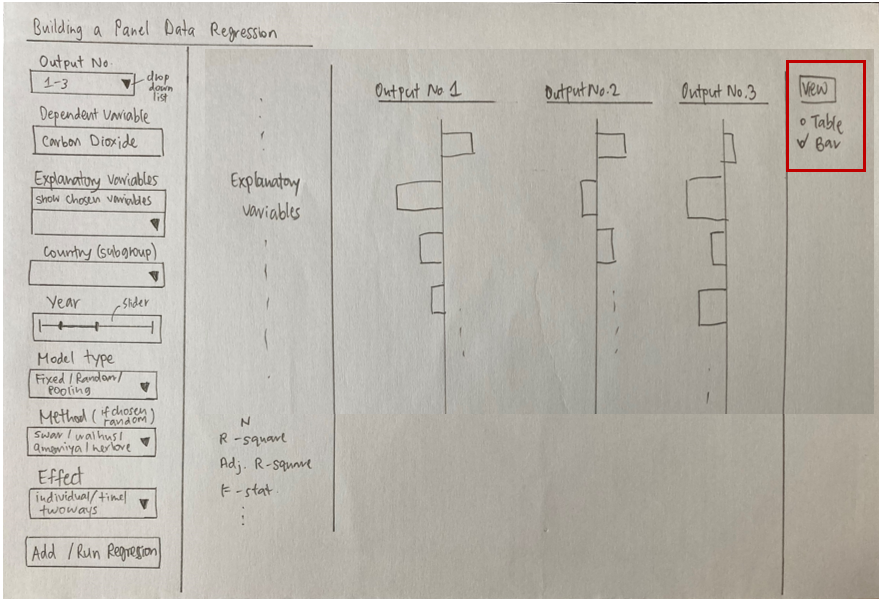 Building a Panel Data Regression
Output No.
1-3
drop
down
list
Dependent Variable
Carbon Dioxide
Explanatory variables
show chosen variables
Country (subgroup)
Year
slider
Model type
Fixed / Random /
Pooling
Method (if chosen
random)
swar / walhus /
amemiya / nerlove
Effect
individual / time /
twoways
Add / Run Regression
Explanatory
variables
N
R - square
Adj. R-square
F - stat
Output No 1
Output No.2
Output No.3
View
Table
Bar